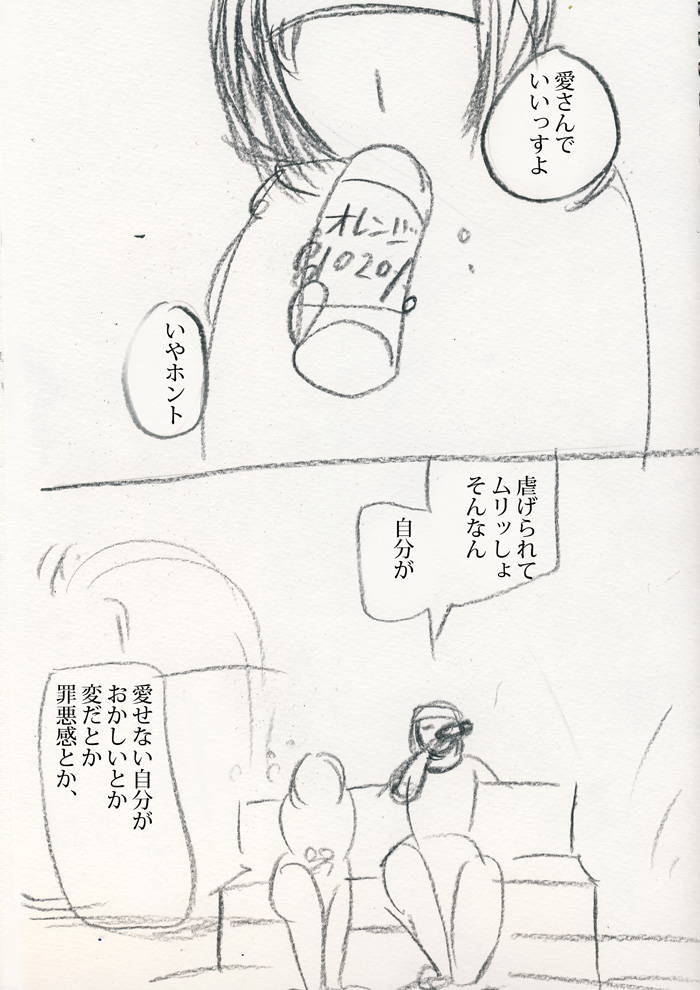 愛さんで
いいっすよ
オレンジ
1020
いやホント
虐げられて
ムリッしょ
そんなん
自分が
愛せない自分が
おかしいとか
変だとか
罪悪感とか、